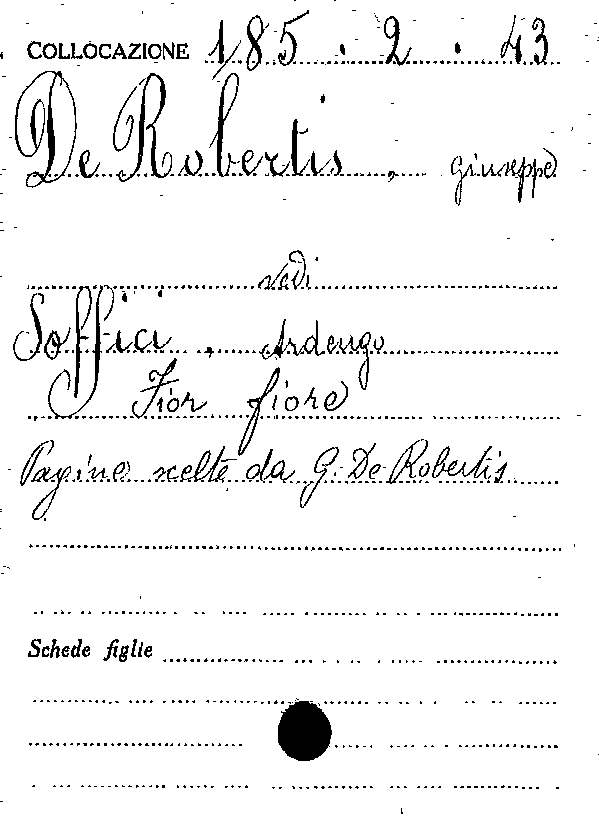 COLLOCAZIONE 185.2.43
De Robertis, Giuseppe
vedi
Soffici, Ardengo
Fior fiore
Pagine scelte da G. De Robertis
Schede figlie